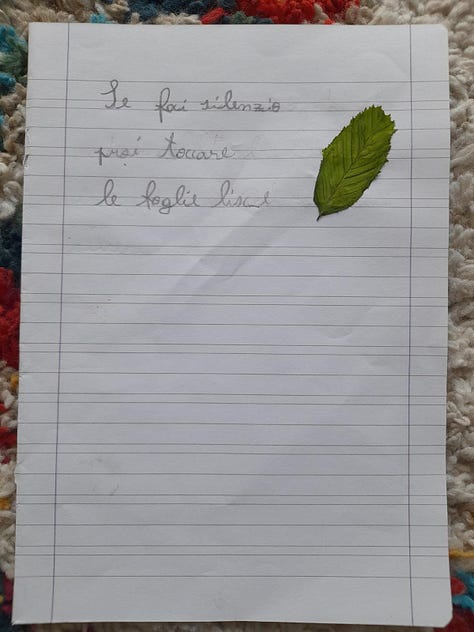 Se fai silenzio
proi toccare
le foglie lisce